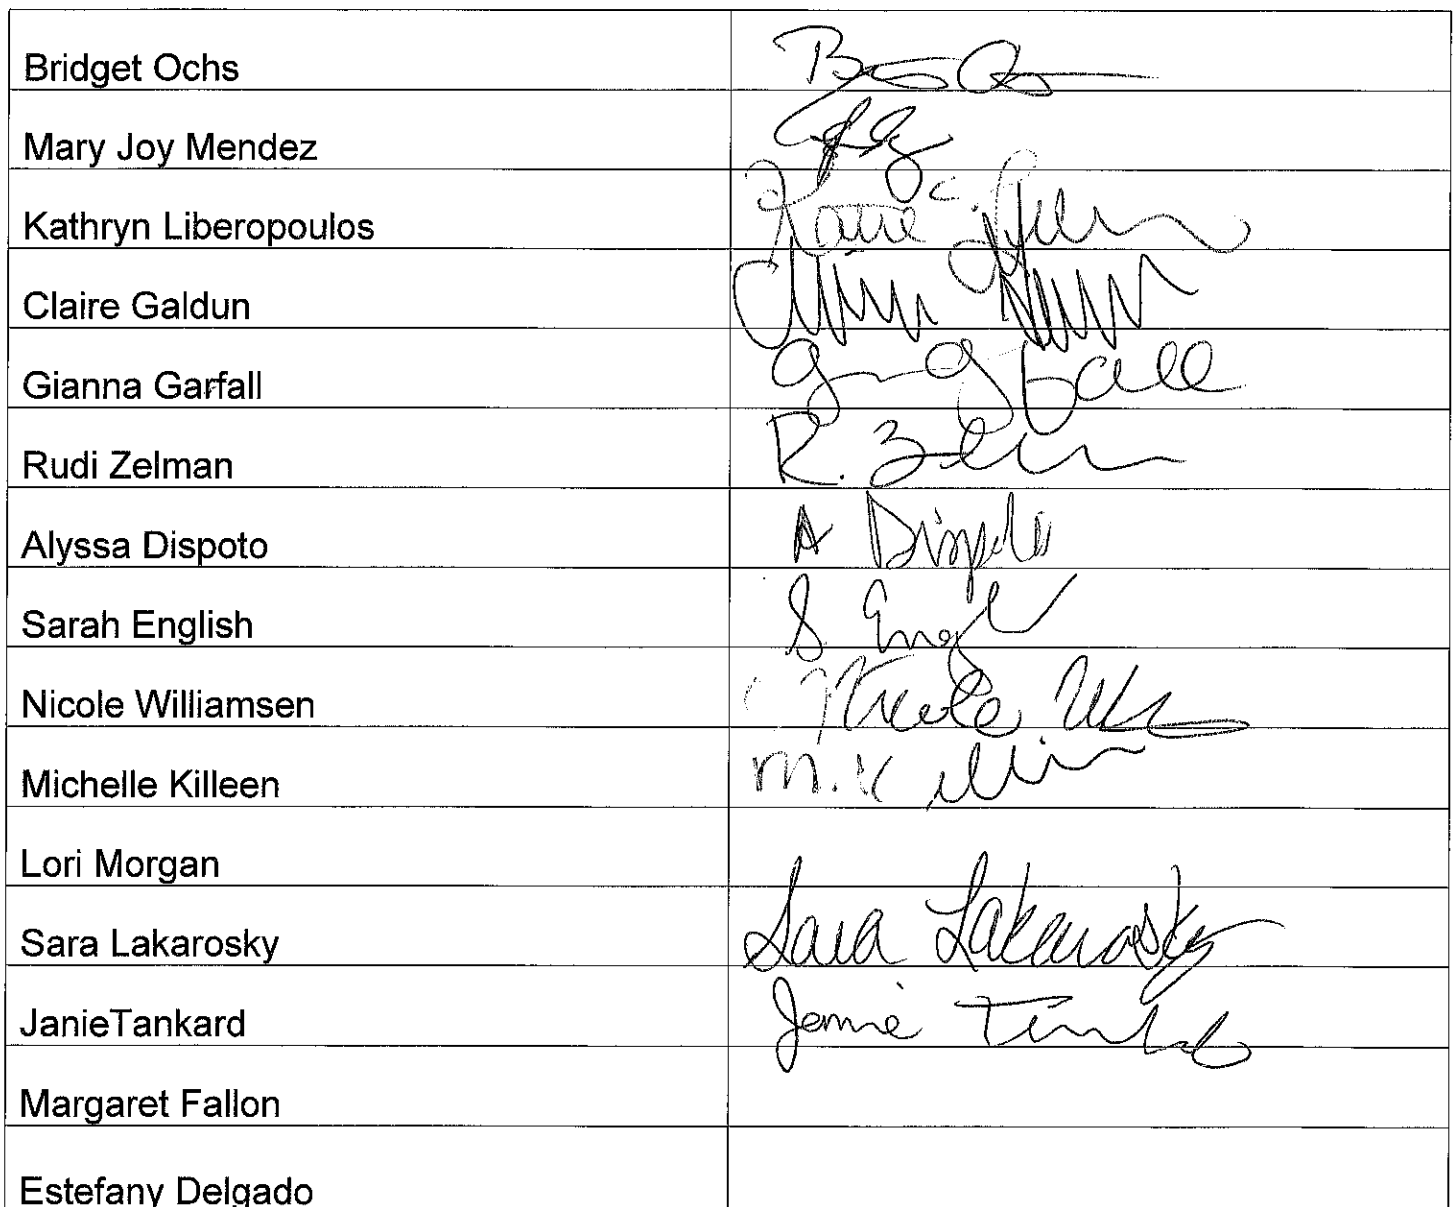 Bridget Ochs
Mary Joy Mendez
Kathryn Liberopoulos
Claire Galdun
Gianna Garfall
Rudi Zelman R. Zelman
Alyssa Dispoto A Dispoto
Sarah English S. Engl
Nicole Williamsen Nicole
Michelle Killeen M. Killeen
Lori Morgan
Sara Lakarosky Sara Lakarosky
JanieTankard Janie Tankard
Margaret Fallon
Estefany Delgado